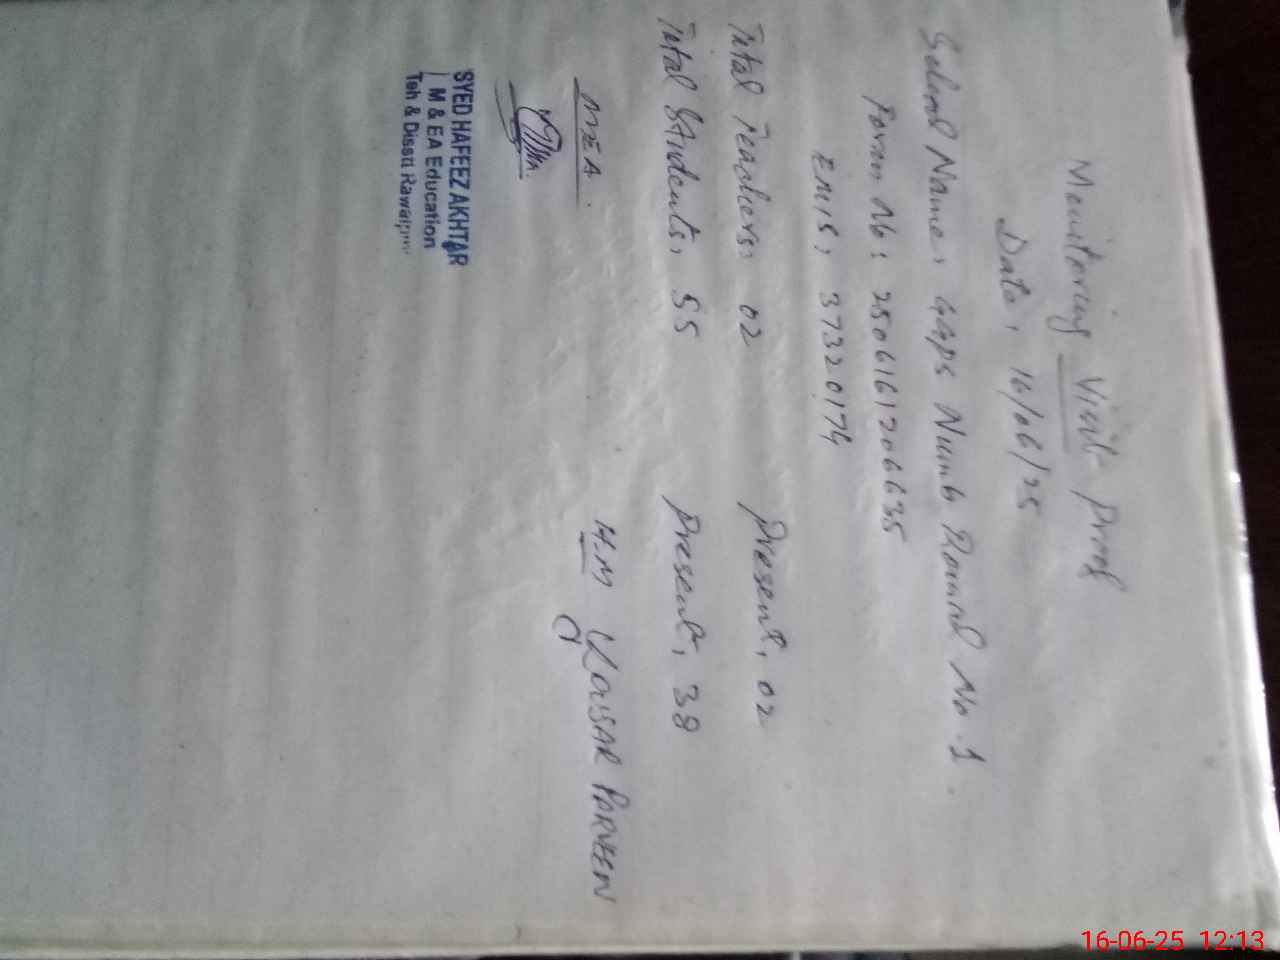 Monitoring Visit Proof
Date: 16/06/25
School Name: GGPS Numb Romal No. 1
Form No: 2506161206635
EMIS: 37320174
Total Teachers: 02 Present: 02
Total Students: 55 Present: 38
MEA. H.M KOUSAR PARVEEN
SYED HAFEEZ AKHTAR
M & EA Education
Teh & Disstt Rawalpindi
16-06-25 12:13